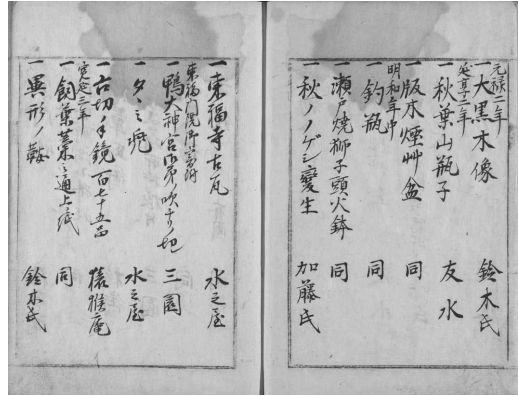 元禄二年
一大黒木像 鈴木氏
延享二年
一秋葉山瓶子 友水
一版木煙艸盆 同
明和年中
一釣瓶 同
一瀬戸焼獅子頭火鉢 同
一秋ノノゲシ変生 加藤氏
一東福寺古瓦 水之屋
東福門院御寄附
一鴨大神宮御簾吹 ノ切 三園
一夕ミ 水之屋
一古切ノ手鏡 百七十五品 猿猴庵
一飼葉藁 通上紙 同
寛延三年
一異形ノ 鈴木氏